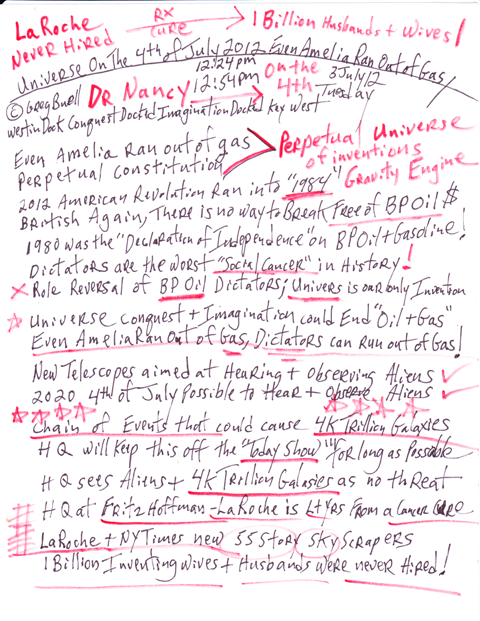 LaRoche RX 1 Billion Husbands + Wives!
Never Hired Cure
Universe On The 4th of July 2012 Even Amelia Ran Out of Gas!
12:24pm On the 3 July 12
© Greg Buell Dr Nancy 12:54pm 4th Tuesday
Westin Dock Conquest Docked Imagination Docked Key West
Even Amelia Ran out of gas
Perpetual Constitution
Perpetual Universe
of inventions
Gravity Engine
2012 American Revolution Ran into "1984"
British Again, There is no way to Break Free of BP Oil $
1980 was the "Declaration of Independence" on BP Oil + Gasoline!
Dictators are the worst "Social Cancer" in History!
X Role Reversal of BP Oil Dictators; Univers is our only Invention
Universe Conquest + Imagination could End "Oil + Gas"
Even Amelia Ran Out of Gas, Dictators can run out of Gas!
New Telescopes aimed at Hearing + Observing Aliens
2020 4th of July Possible to Hear + Observe Aliens
Chain of Events that could cause 4K Trillion Galaxies
HQ will keep this off the "Today Show" for long as Possible
HQ sets Aliens + 4K Trillion Galaxies as no threat
HQ at Fritz Hoffman-LaRoche is Lt yrs From a Cancer Cure
LaRoche + NY Times new 55 Story Sky Scrapers
1 Billion Inventing Wives + Husbands were never Hired!